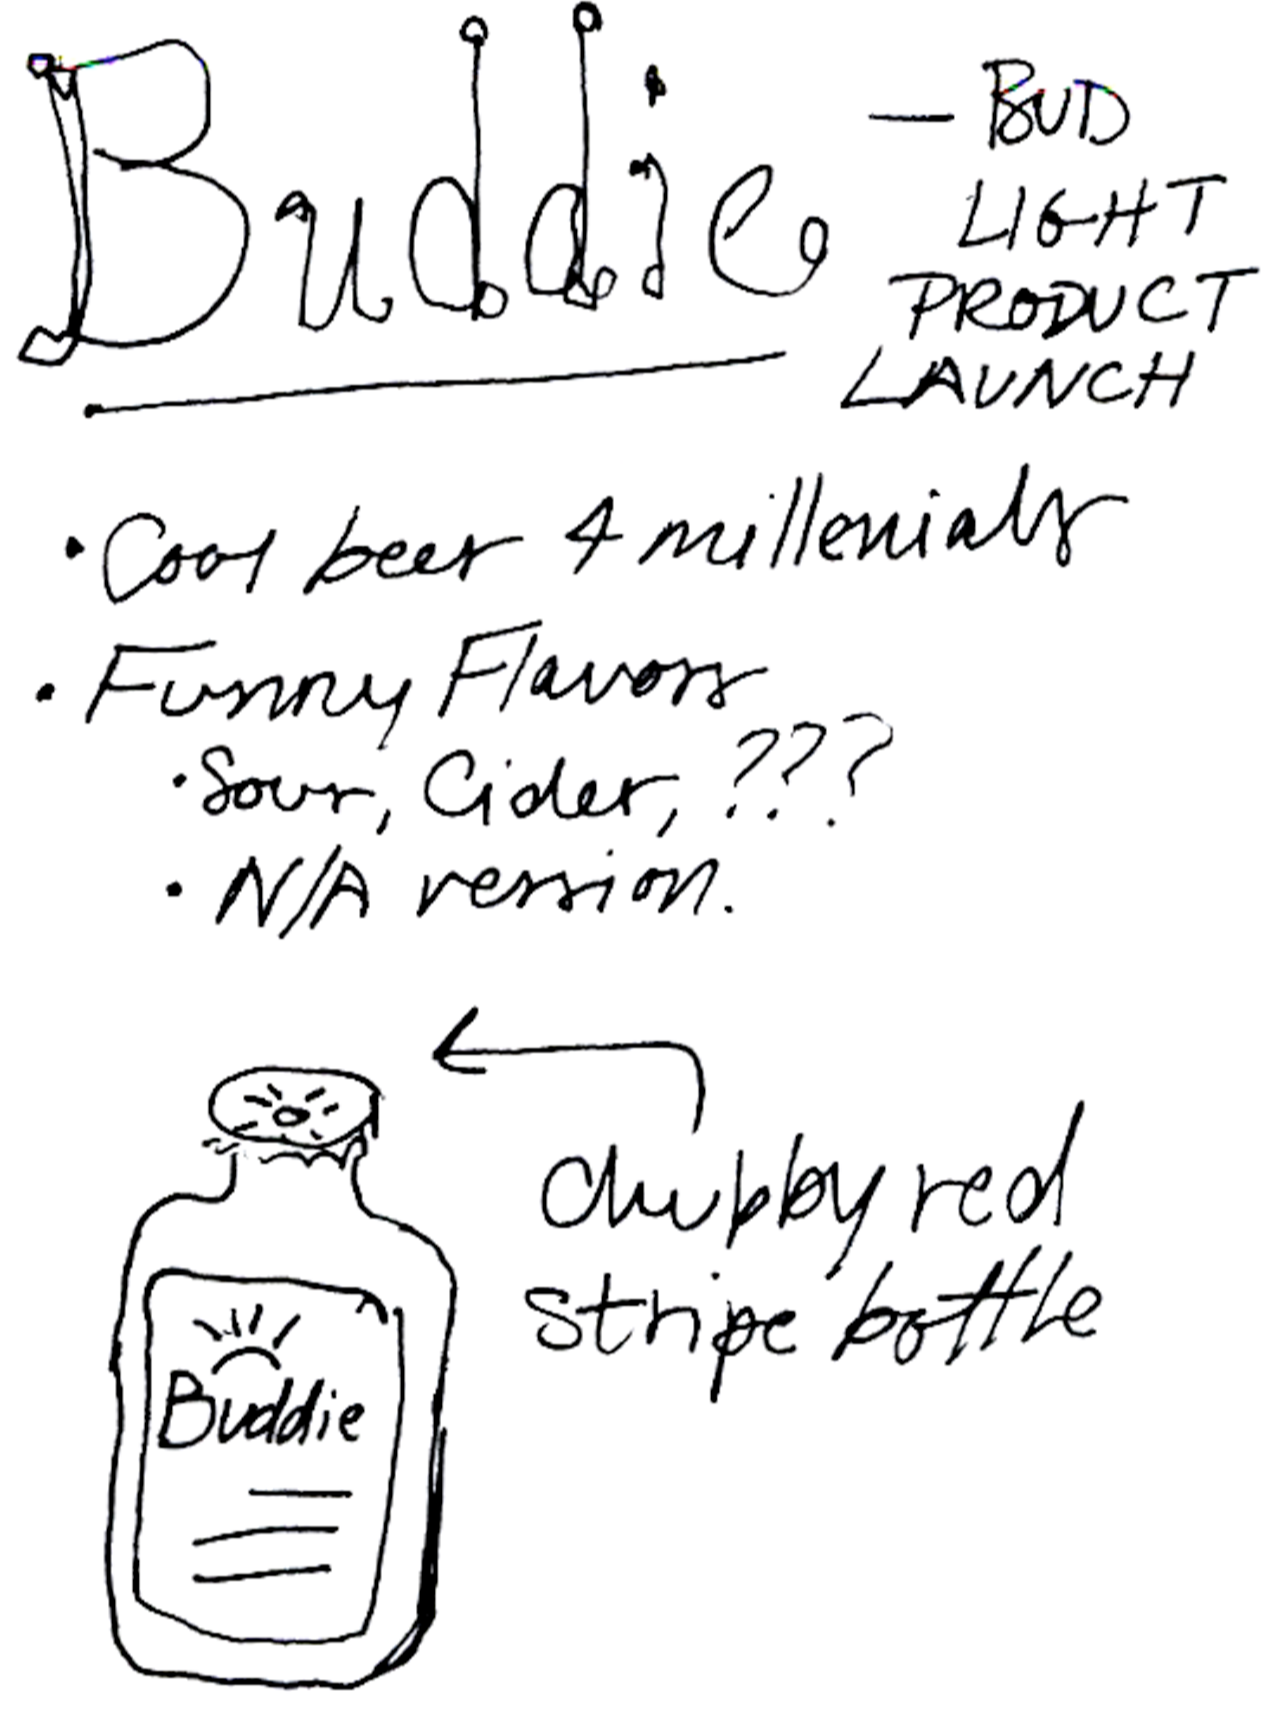 Buddie — BUD
LIGHT
PRODUCT
LAUNCH
• Cool beer 4 millenials
• Funny Flavors
• Sour, Cider, ???
• N/A version.
chubby red
stripe bottle
Buddie